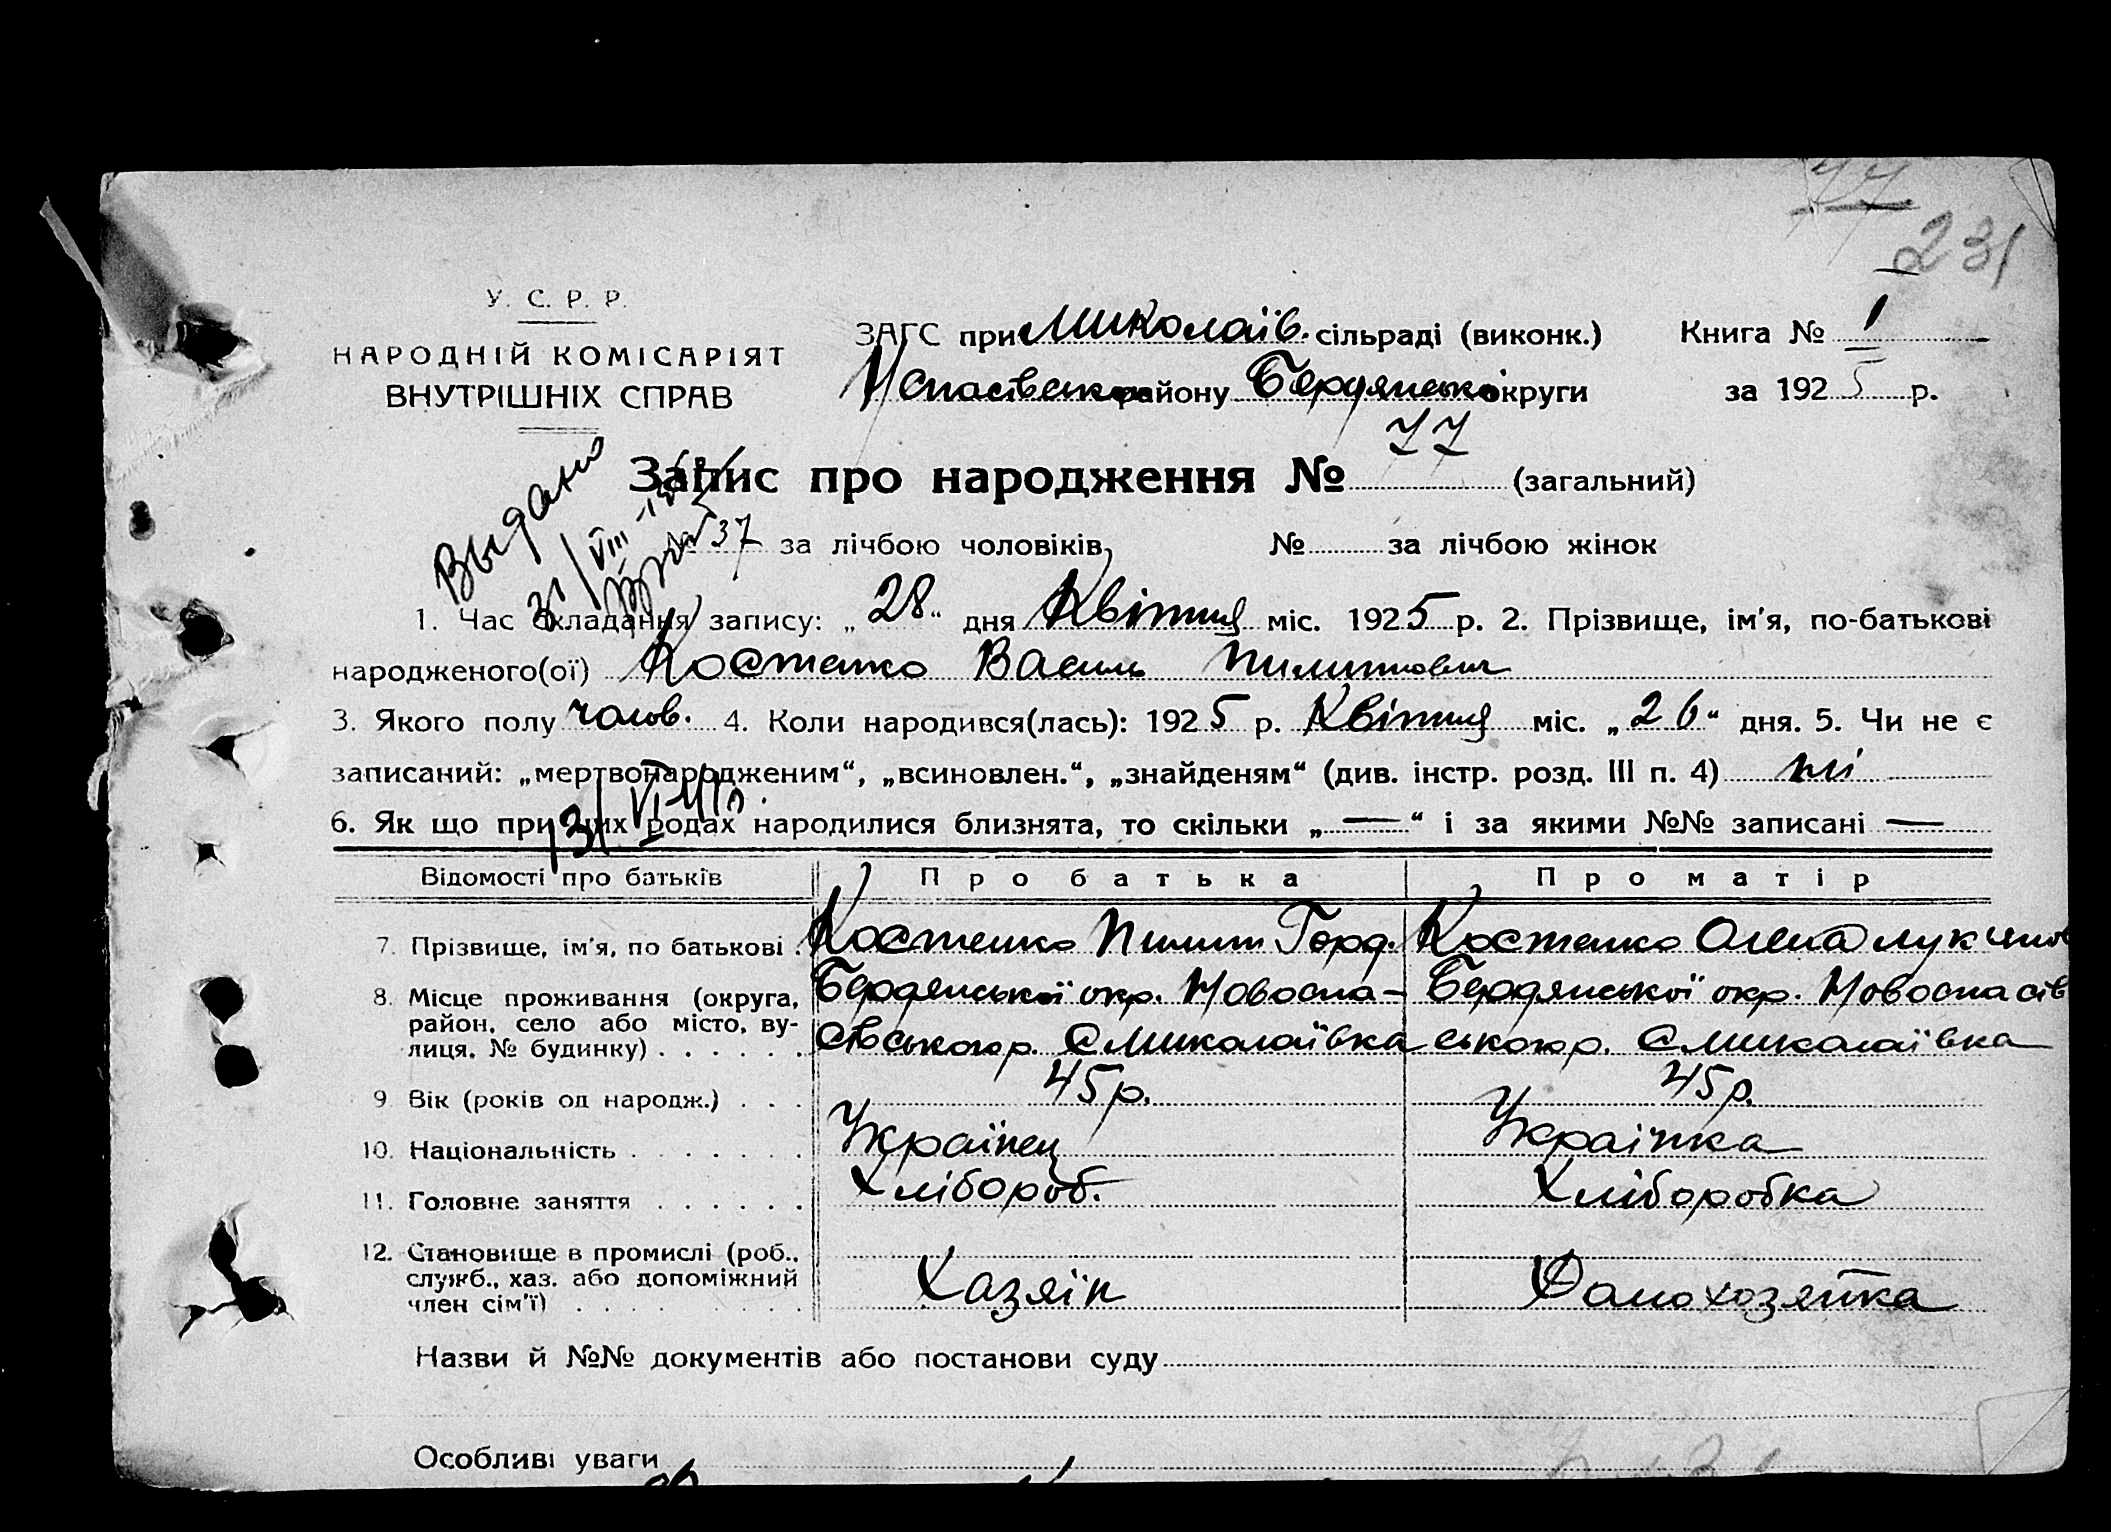 77
231
У. С. Р. Р.
НАРОДНІЙ КОМІСАРІЯТ
ВНУТРІШНІХ СПРАВ
ЗАГС при Миколаїв. сільраді (виконк.) Книга № 1
Нспасівсько району Бердянсько округи за 1925 р.
Запис про народження № 77 (загальний)
37 за лічбою чоловіків, № за лічбою жінок
Выдано
31/VIII
1. Час складання запису: „28“ дня Квітня міс. 1925 р. 2. Прізвище, ім'я, по-батькові
народженого(ої) Костенко Василь Пилипович
3. Якого полу чолов. 4. Коли народився(лась): 1925 р. Квітня міс. „26“ дня. 5. Чи не є
записаний: „мертвонародженим“, „всиновлен.“, „знайденям“ (див. інстр. розд. III п. 4) ні
6. Як що при цих родах народилися близнята, то скільки „—“ і за якими №№ записані —
Відомості про батьків Про батька Про матір
7. Прізвище, ім'я, по батькові . Костенко Пилип Горд. Костенко Олена Лукянов
8. Місце проживання (округа, Бердянської окр. Новоспа- Бердянської окр. Новоспасів
район, село або місто, ву-
лиця, № будинку) . . . . . . сівського р. с Миколаївка ського р. с Миколаївка
9 Вік (років од народж.) . . . 45 р. 45 р.
10. Національність . . . . . . . Українець Українка
11. Головне заняття . . . . . . Хлібороб. Хліборобка
12. Становище в промислі (роб.,
служб., хаз. або допоміжний Хазяїн Домохозяйка
член сім'ї) . . . . . . . . .
Назви й №№ документів або постанови суду
Особливі уваги